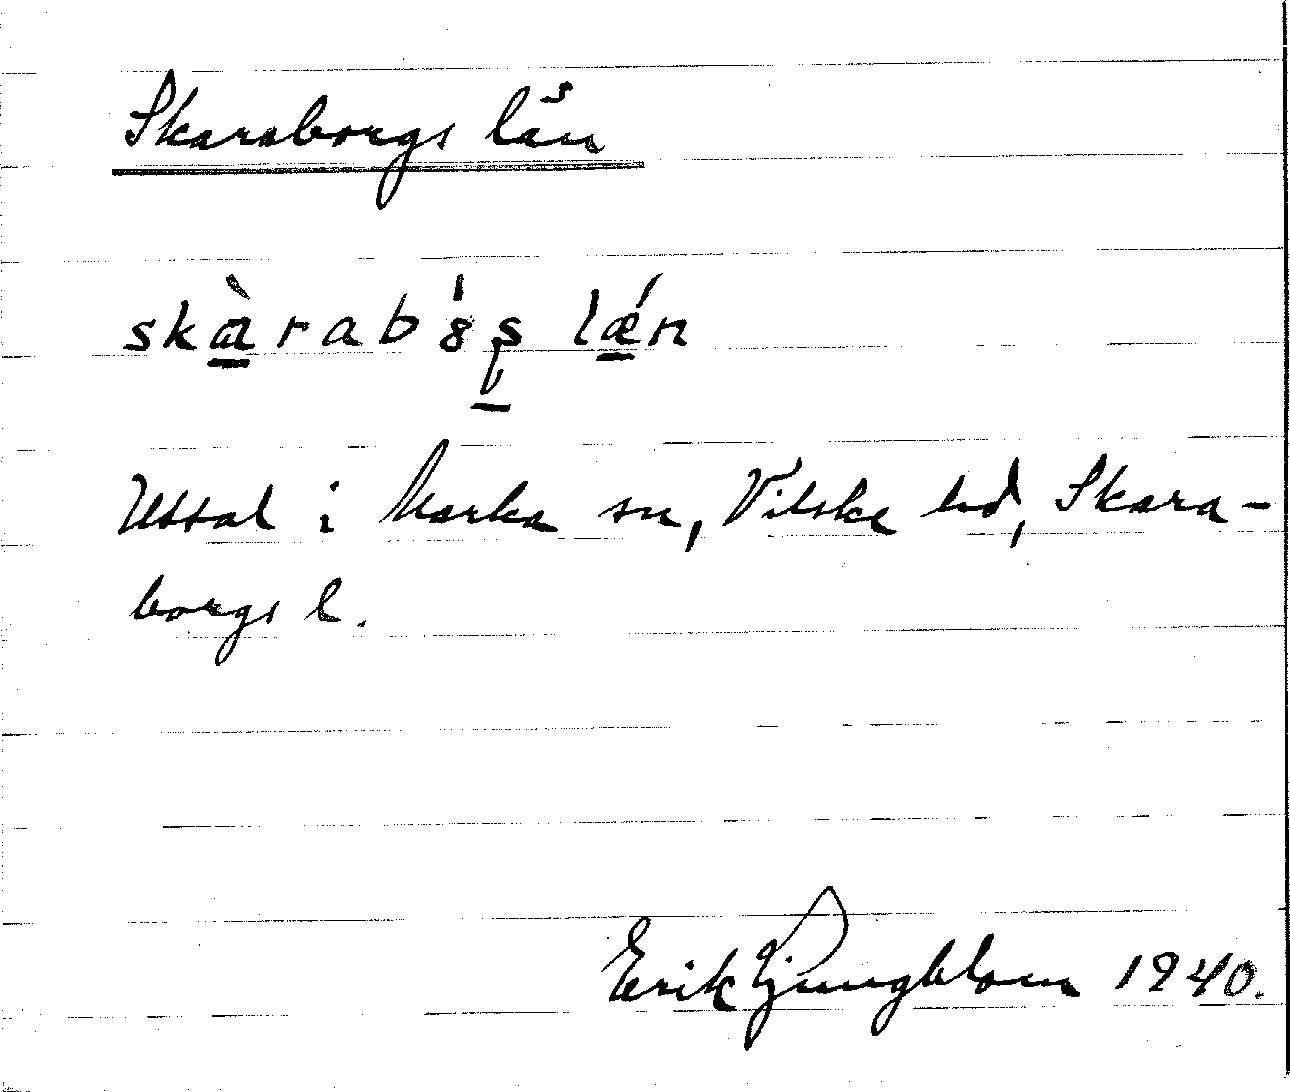 Skaraborgs län
skàrabȣ́ʂ lǽn
Uttal i Marka sn, Vilske hd, Skara-
borgs l.
Erik Ljungblom 1940.